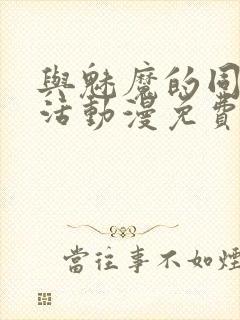 與魅魔的同
活動漫免費
當往事不如煙